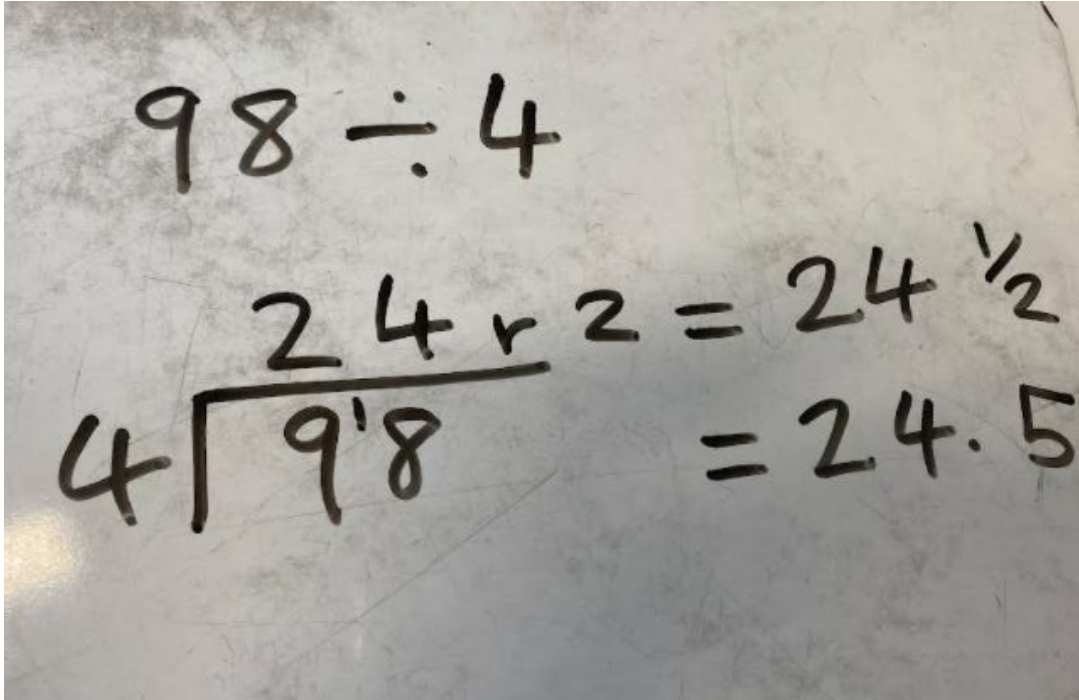 98 ÷ 4
24 r 2 = 24 1/2
4 9 1 8 = 24.5